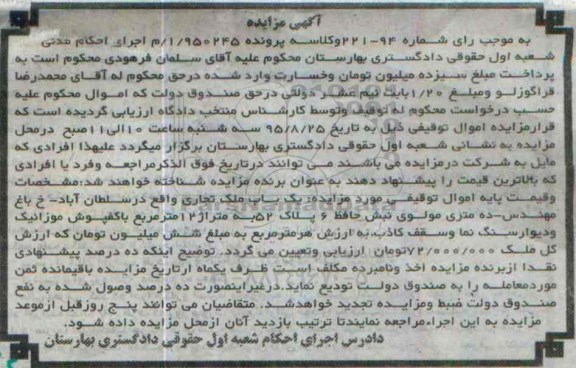 آگهی مزایده
به موجب رای شماره ۹۴-۲۲۱وکلاسه پرونده ۹۵۰۲۴۵/۱/م اجرای احکام مدنی
شعبه اول حقوقی دادگستری بهارستان محکوم علیه آقای سلمان فرهودی محکوم است به
پرداخت مبلغ سیزده میلیون تومان وخسارت وارد شده درحق محکوم له آقای محمدرضا
قراگوزلو ومبلغ ۱/۲۰بابت نیم عشر دولتی درحق صندوق دولت که اموال محکوم علیه
حسب درخواست محکوم له توقیف وتوسط کارشناس منتخب دادگاه ارزیابی گردیده است که
قرارمزایده اموال توقیفی ذیل به تاریخ ۹۵/۸/۲۵ سه شنبه ساعت ۱۰الی۱۱صبح درمحل
مزایده به نشانی شعبه اول حقوقی دادگستری بهارستان برگزار میگردد علیهذا افرادی که
مایل به شرکت درمزایده می باشند می توانند درتاریخ فوق الذکرمراجعه وفرد یا افرادی
که بالاترین قیمت را پیشنهاد دهند به عنوان برنده مزایده شناخته خواهند شد:مشخصات
وقیمت پایه اموال توقیفی مورد مزایده: یک باب ملک تجاری واقع درسلطان آباد- خ باغ
مهندس-ده متری مولوی نبش حافظ ۶ پلاک ۵۲به متراژ۱۲مترمربع باکفپوش موزائیک
ودیوارسنگ نما وسقف کاذب.به ارزش هرمترمربع به مبلغ شش میلیون تومان که ارزش
کل ملک ۷۲/۰۰۰/۰۰۰تومان ارزیابی وتعیین می گردد. توضیح اینکه ده درصد پیشنهادی
نقدا ازبرنده مزایده اخذ ونامبرده مکلف است ظرف یکماه ازتاریخ مزایده باقیمانده ثمن
موردمعامله را به صندوق دولت تودیع نماید.درغیراینصورت ده درصد وصول شده به نفع
صندوق دولت ضبط ومزایده تجدید خواهدشد. متقاضیان می توانند پنج روزقبل ازموعد
مزایده به این اجراءمراجعه نمایندتا ترتیب بازدید آنان ازمحل مزایده داده شود.
دادرس اجرای احکام شعبه اول حقوقی دادگستری بهارستان